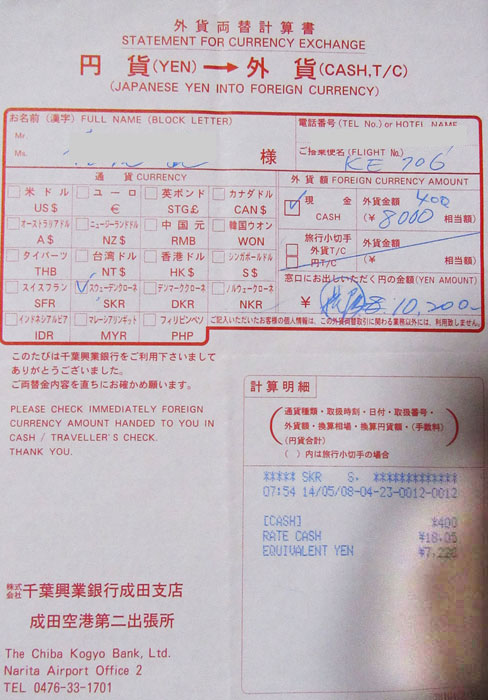 外貨両替計算書
STATEMENT FOR CURRENCY EXCHANGE
円貨(YEN)→外貨(CASH,T/C)
(JAPANESE YEN INTO FOREIGN CURRENCY)
お名前(漢字)FULL NAME (BLOCK LETTER)
Mr.
Ms.
様
電話番号(TEL No.) or HOTEL NAME
ご搭乗便名(FLIGHT No.)
KE 706
通貨 CURRENCY
米ドル US$
ユーロ €
英ポンド STG£
カナダドル CAN$
オーストラリアドル A$
ニュージーランドドル NZ$
中国元 RMB
韓国ウオン WON
タイバーツ THB
台湾ドル NT$
香港ドル HK$
シンガポールドル S$
スイスフラン SFR
スウェーデンクローネ SKR
デンマーククローネ DKR
ノルウェークローネ NKR
インドネシアルピア IDR
マレーシアリンギット MYR
フィリピンペソ PHP
外貨額 FOREIGN CURRENCY AMOUNT
現金 CASH
外貨金額 400
(¥ 8000 相当額)
旅行小切手
外貨T/C
円T/C
外貨金額
(¥ 相当額)
窓口にお出しいただく円の金額(YEN AMOUNT)
¥ 10,200-
ご記入いただいたお客様の個人情報は、この外貨両替取引に関わる業務以外には、利用致しません。
このたびは千葉興業銀行をご利用下さいまして
ありがとうございました。
ご両替金内容を直ちにお確かめ願います。
PLEASE CHECK IMMEDIATELY FOREIGN
CURRENCY AMOUNT HANDED TO YOU IN
CASH / TRAVELLER'S CHECK.
THANK YOU.
計算明細
(通貨種類・取扱時刻・日付・取扱番号・
外貨額・換算相場・換算円貨額・(手数料)
(円貨合計)
( )内は旅行小切手の場合
***** SKR S. *************
07:54 14/05/08-04-23-0012-0012
[CASH] *400
RATE CASH ¥18.05
EQUIVALENT YEN ¥7,220
株式会社千葉興業銀行成田支店
成田空港第二出張所
The Chiba Kogyo Bank, Ltd.
Narita Airport Office 2
TEL 0476-33-1701